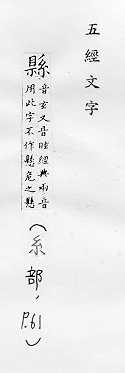 五經文字
縣
音玄又音眩經典兩音
用此字不作懸危之懸
(系部,P.61)